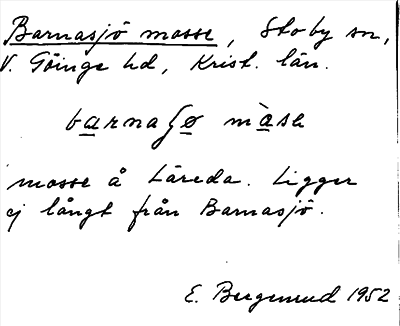 Barnasjö mosse, Stoby sn,
V. Göinge hd, Krist. län.
barnaʃø màsa
mosse å Läreda. Ligger
ej långt från Barnasjö.
E. Bergemud 1952